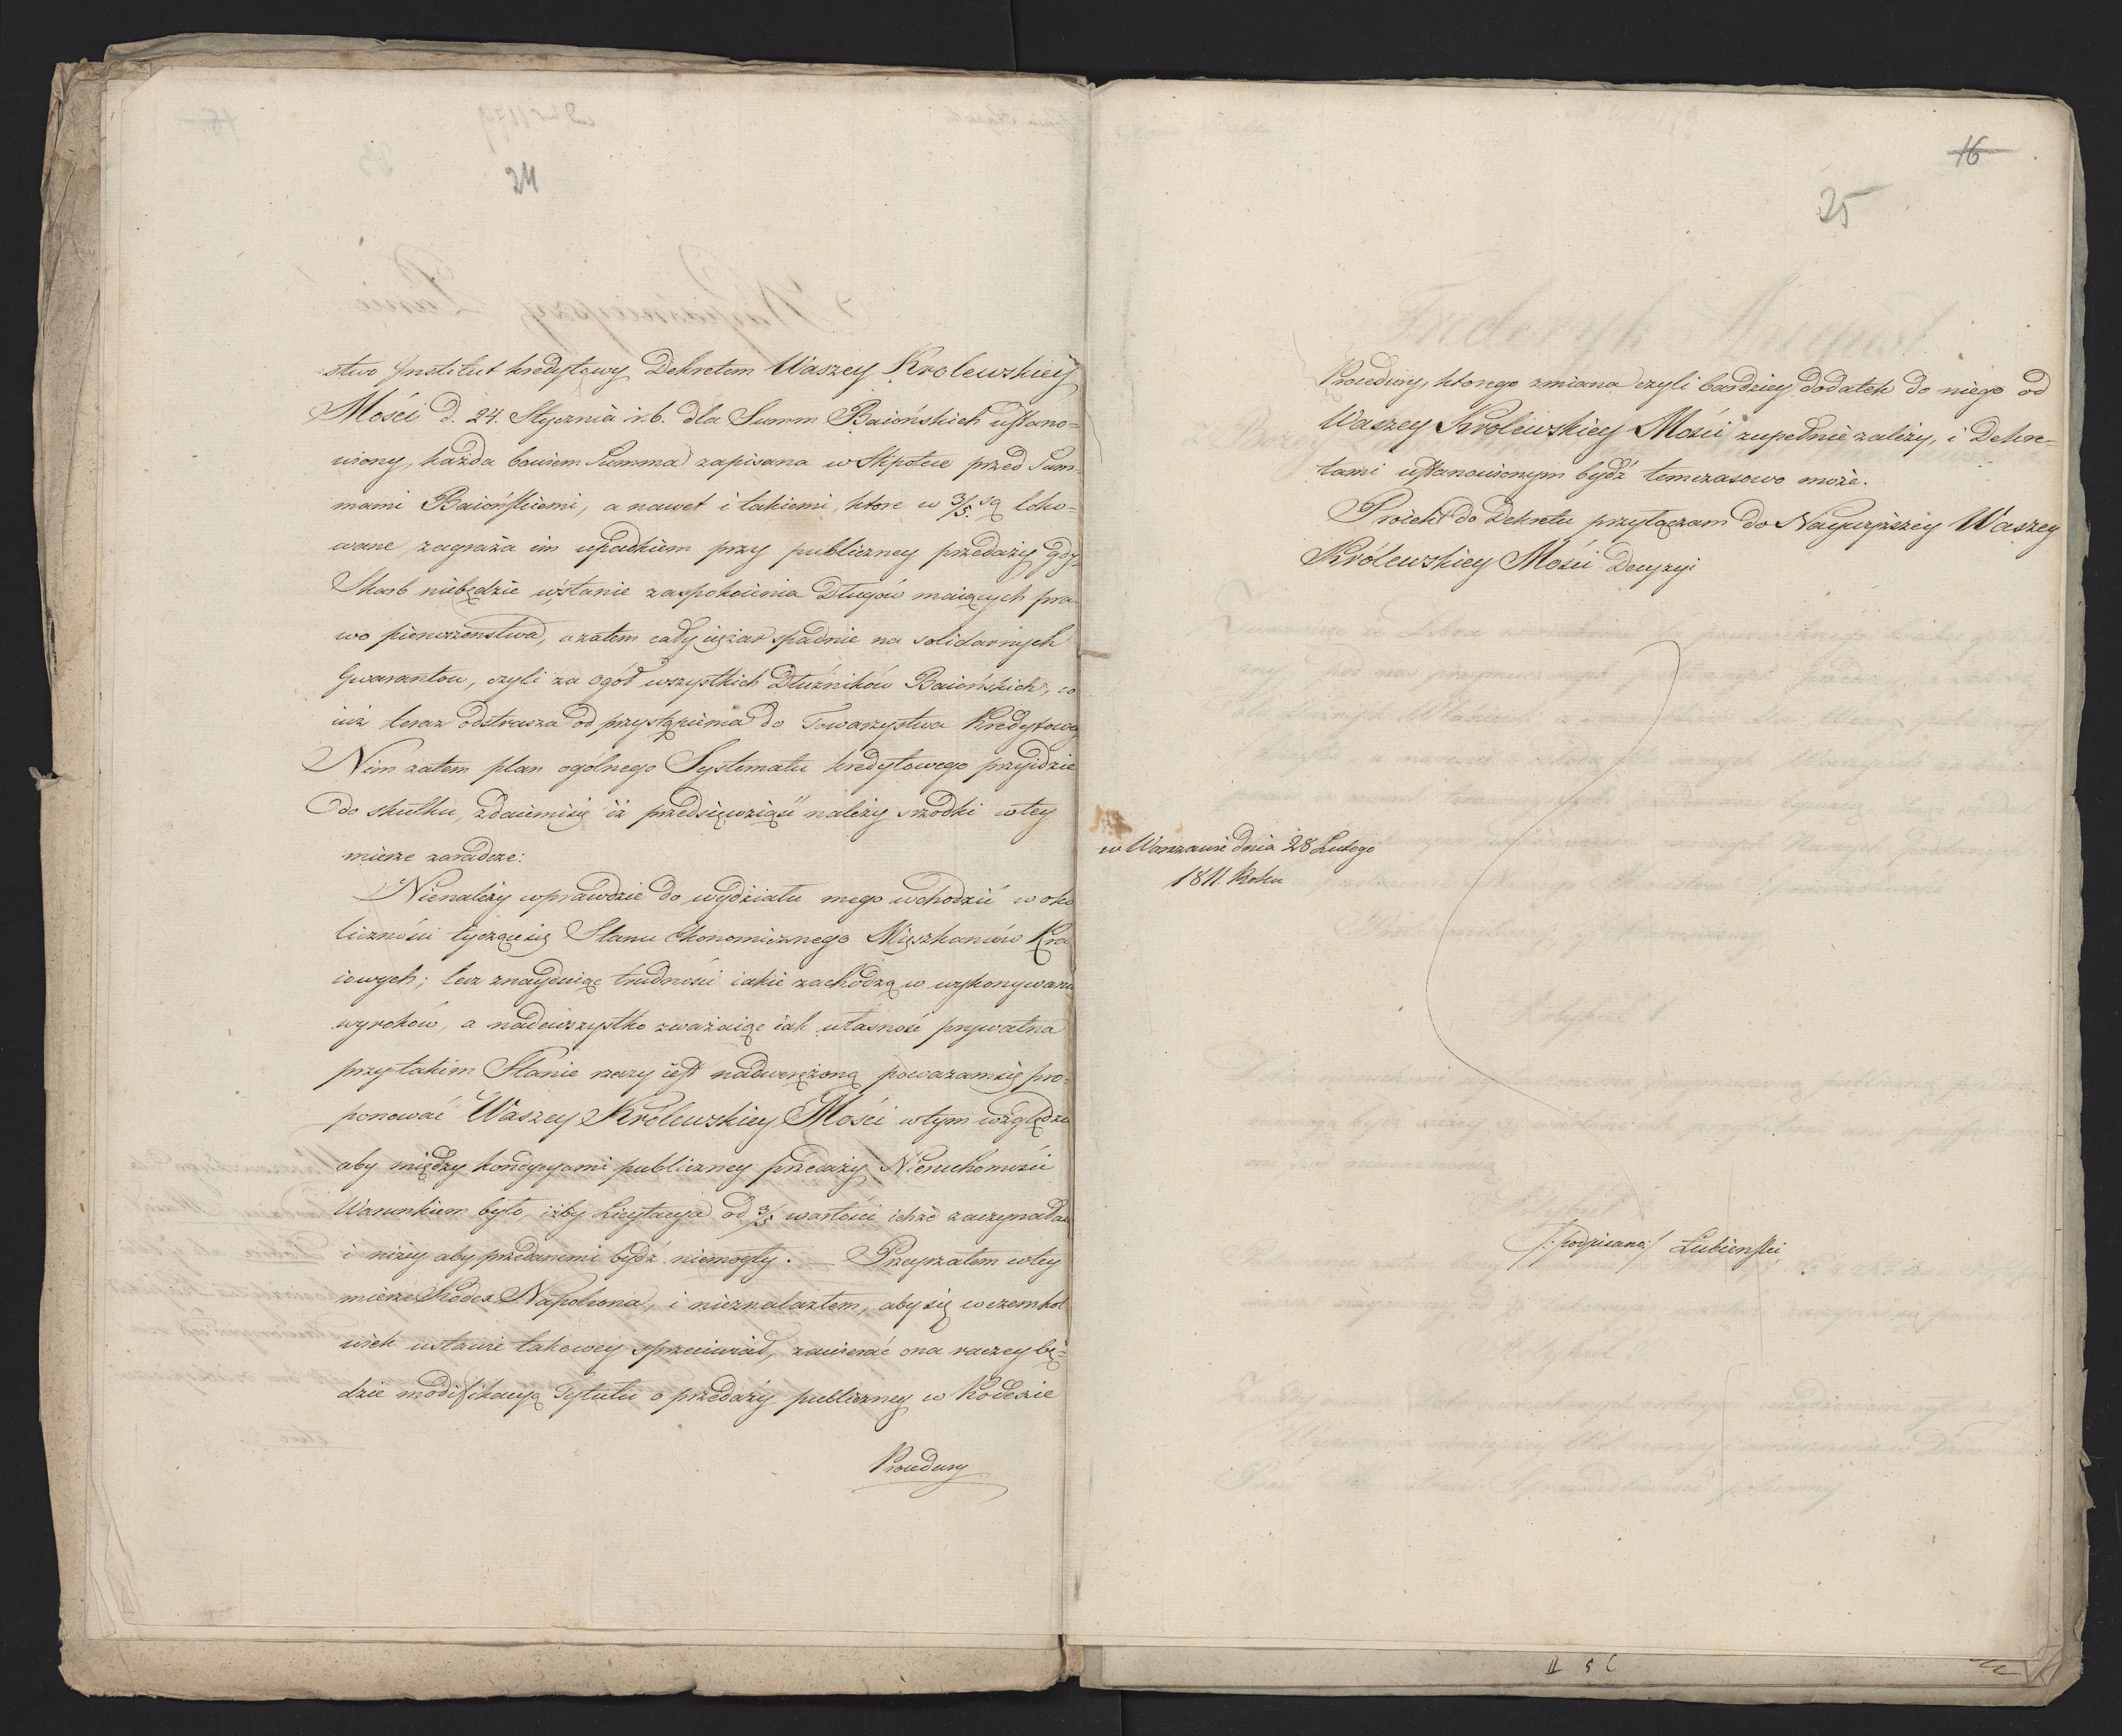 24
stwo Jnstitut kredytowy Dekretem Waszey Krolewskiey
Mości d. 24. Stycznia r.b. dla Summ Baiońskich ustano=
wiony, każda bowiem Summa zapisana w Hipotece przed Sum=
mami Baiońskiemi, a nawet i takiemi, ktore w 3/5. są loko=
wane, zagraża im upadkiem przy publiczney przedaży gdy
Skarb niebędzie wstanie zaspokoienia Długów maiących pra=
wo pierwszenstwa, azatem cały ciężar spadnie na solidarnych
Gwarantow, czyli za ogół wszystkich Dłużników Baiońskich, co
iuż teraz odstrasza od przystąpienia do Towarzystwa Kredytowego
Nim zatem plan ogólnego Systematu kredytowego przyidzie
do skutku, zdaiemisię iż przedsięwziąść należy srzodki wtey
mierze zaradcze:
Nienależy wprawdzie do wydziatu mego wchodzić w oko
liczności tyczącesię Stanu Ekonomicznego Mięszkancow Kra
iowych; lecz znayduiąc trudności iakie zachodzą w wykonywaniu
wyroków, a nadewszystko zważaiąc iak własność prywatna
przytakim Stanie rzeczy iest nadwerężoną poważamsię pro=
ponować Waszey Królewskiey Mości wtym względzie
aby między kondycyami publiczney przedaży Nieruchomości
Warunkiem było, iżby Licytacya od 3/5 wartości ichże zaczynałasię
i niżey aby przedanemi bydź niemogły. — Przeyrzałem wtey
mierze Kodex Napoleona, i nieznalazłem, aby się wczemkol
wiek ustawie takowey sprzeciwiał, zawierać ona raczey bę=
dzie modifikacyą Tytułu o przedaży publiczney w Kodexie
Procedury
16
25
Procedury, ktorego zmiana czyli bardziey dodatek do niego od
Waszey Krolewskiey Mości zupełnie zależy, i Dekre=
tami ustanowionym bydź temczasowo może.
Proiekt do Dekretu przyłączam do Naywyższey Waszey
Królewskiey Mości Decyzyi
w Warszawie dnia 28 Lutego
1811. Roku
/:podpisano:/ Lubienski